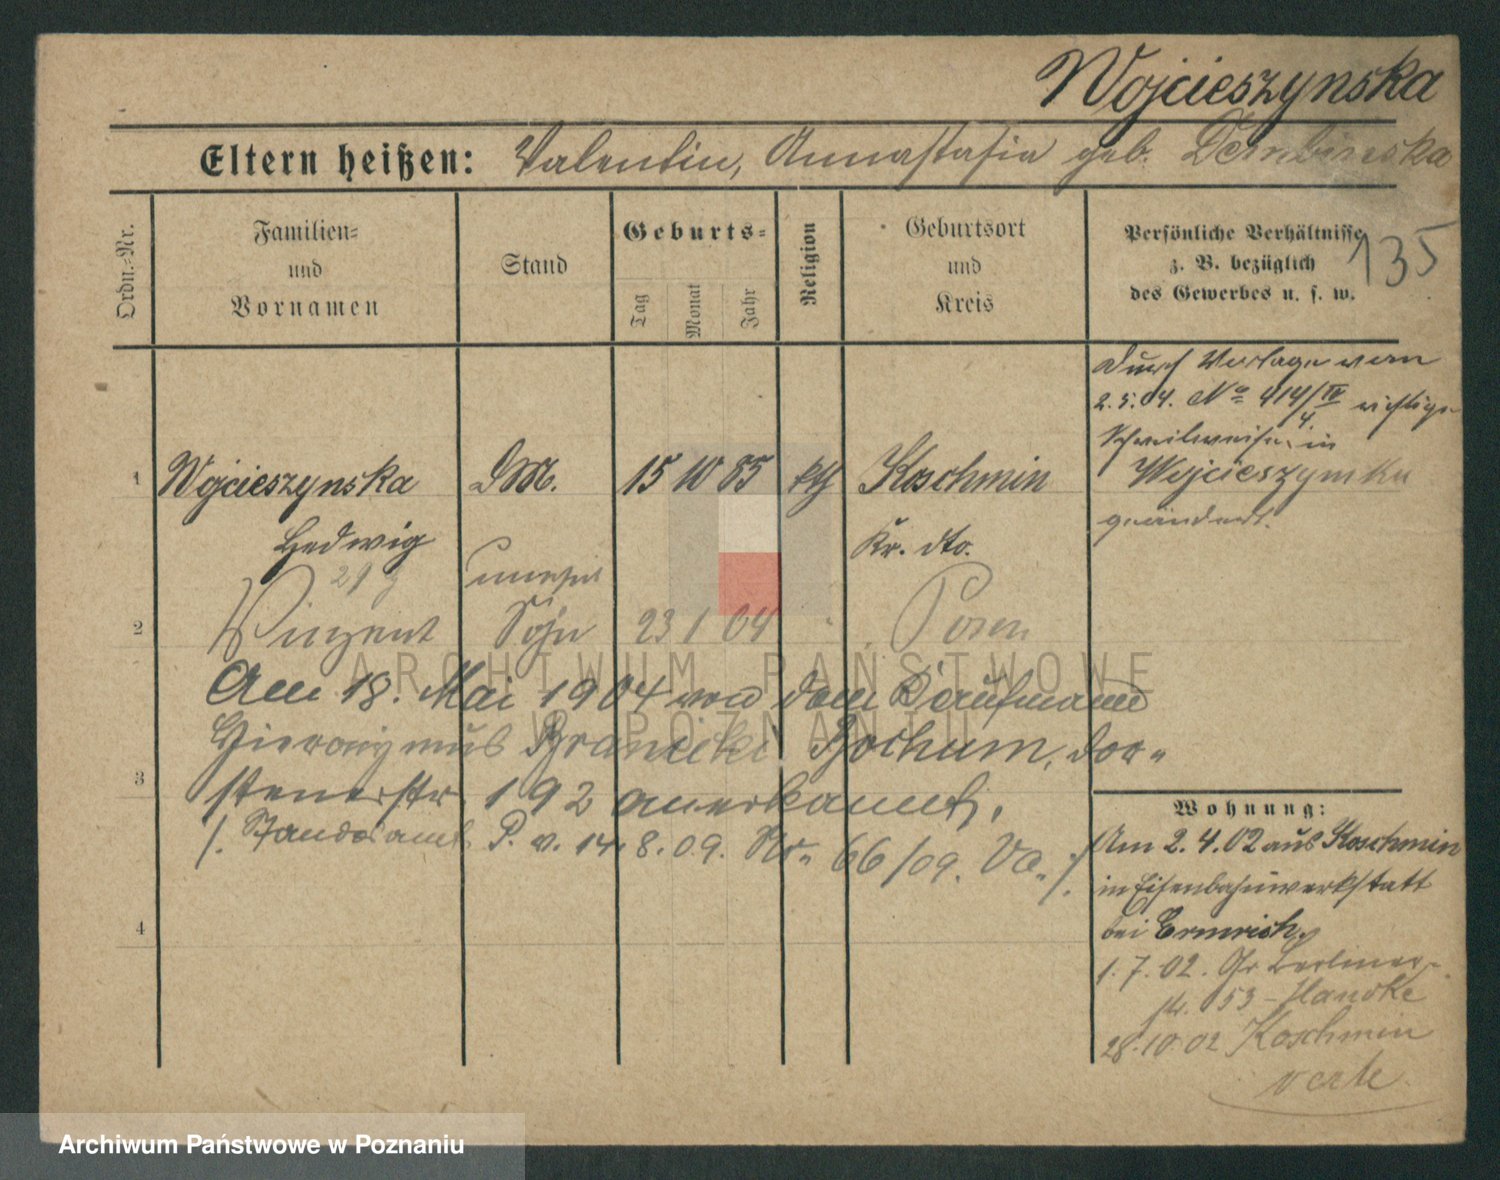 Wojcieszynska
Eltern heißen: Valentin, Annastasia geb. Dembinska
135
Ordn.-Nr.
Familien-
und
Vornamen
Stand
Geburts-
Tag
Monat
Jahr
Religion
Geburtsort
und
Kreis
Persönliche Verhältnisse
z. B. bezüglich
des Gewerbes u. s. w.
Durch Vorlage vom
2.5.04. No 414/IV richtige
4
Schreibweise in
Wojcieszynska
geändert.
1 Wojcieszynska DM. 15 10 85 kth Koschmin
Hedwig Kr. dto.
29
2 Vinzent Sohn 23 1 04 Posen
Am 18. Mai 1904 von dem Kaufmann
Hieronymus Branicki Bochum, Dor-
3 stenerstr. 192 anerkannt.
/. Standesamt P. v. 14.8.09. Nr. 66/09. Va. /.
4
Wohnung:
Am 2.4.02 aus Koschmin
in Eisenbahnwerkstatt
bei Ermrich.
1.7.02. Gr Berliner-
str. 53 - Handke
28.10.02 Koschmin
verte
ARCHIWUM PAŃSTWOWE
W POZNANIU
Archiwum Państwowe w Poznaniu